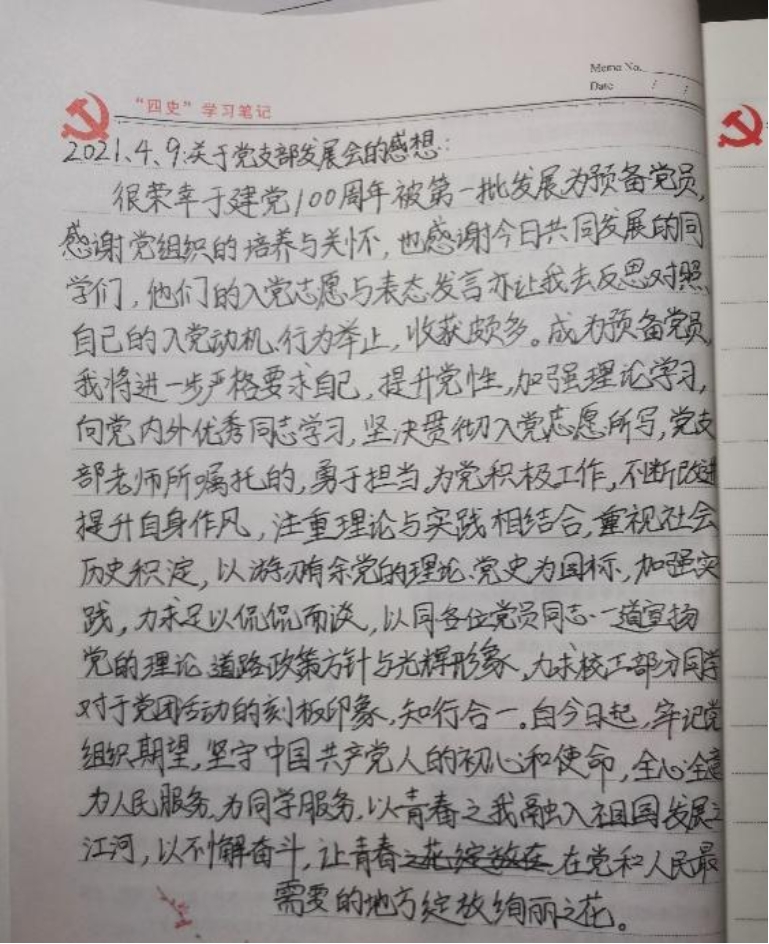 Memo No.
Date / /
“四史”学习笔记
2021.4.9:关于党支部发展会的感想:
很荣幸于建党100周年被第一批发展为预备党员,
感谢党组织的培养与关怀,也感谢今日共同发展的同
学们,他们的入党志愿与表态发言亦让我去反思对照
自己的入党动机、行为举止,收获颇多。成为预备党员,
我将进一步严格要求自己,提升党性,加强理论学习,
向党内外优秀同志学习,坚决贯彻入党志愿所写,党支
部老师所嘱托的,勇于担当,为党积极工作,不断改进
提升自身作风,注重理论与实践相结合,重视社会
历史积淀,以游刃有余党的理论、党史为目标,加强实
践,力求足以侃侃而谈,以同各位党员同志一道宣扬
党的理论道路政策方针与光辉形象,力求校正部分同学
对于党团活动的刻板印象,知行合一。自今日起,牢记党
组织期望,坚守中国共产党人的初心和使命,全心全意
为人民服务,为同学服务,以青春之我融入祖国发展之
江河,以不懈奋斗,让青春之花绽放在,在党和人民最
需要的地方绽放绚丽之花。